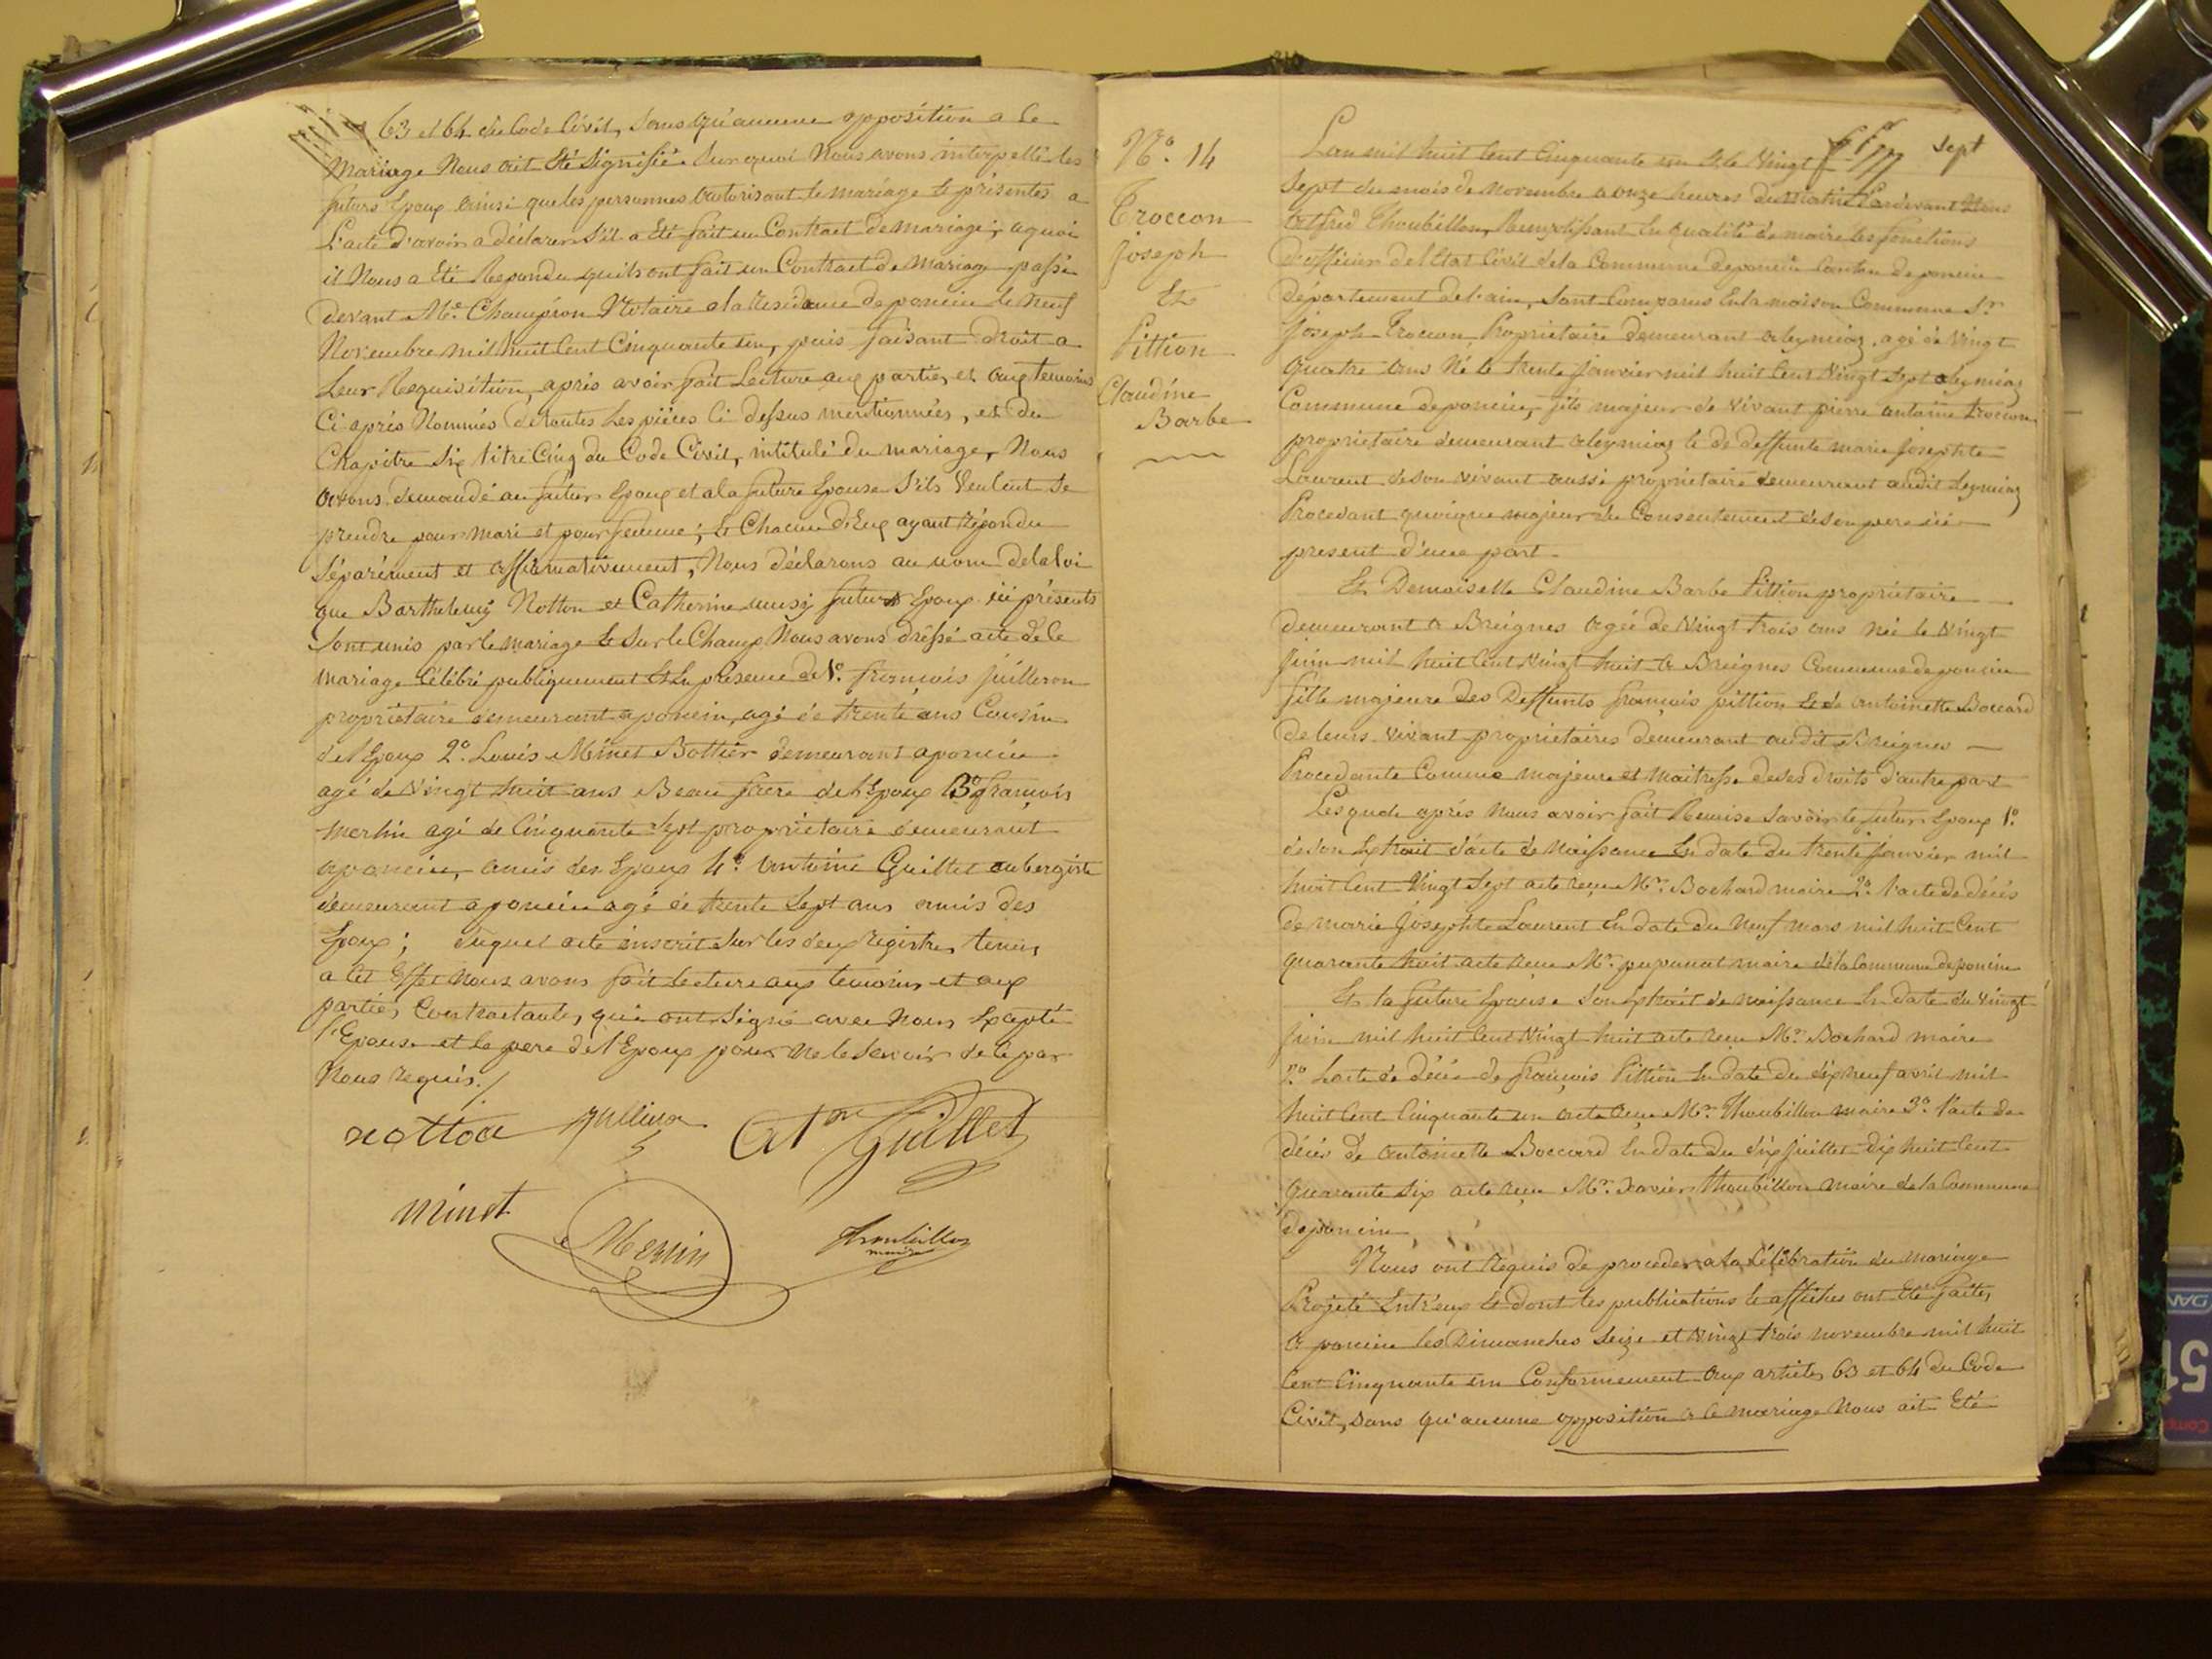 63 et 64 du Code Civil, sans qu'aucune opposition a ce
Mariage Nous ait Eté Signifié. Sur quoi Nous avons interpellé les
futurs Epoux Ainsi que les personnes autorisant le mariage le présentes a
L'acte d'avoir a déclarer S'il a Eté fait un Contrat de mariage, aquoi
il Nous a Eté Repondu quils ont fait un Contrat de Mariage passé
devant Me. Champion Notaire ala Residence de poncin le Neuf
Novembre mil huit Cent Cinquante un, puis faisant droit a
Leur Requisition, après avoir fait Lecture aux parties et aux temoins
Ci après Nommés de toutes Les pièces Ci dessus mentionnées, et du
Chapitre Six titre Cinq du Code Civil, intitulé du mariage, Nous
avons demandé au futur Epoux et ala future Epouse S'ils Veulent Se
prendre pour mari et pour femme; Et Chacun d'Eux ayant Répondu
Séparément et affirmativement, Nous déclarons au nom de la loi
que Barthelemy Notton et Catherine futurs Epoux ici présents
Sont unis par le mariage Et Sur le Champ Nous avons dréssé acte de Ce
mariage Célébré publiquement Et En présence de 1o. françois juilleron
propriétaire demeurant a poncin, agé de trente ans Cousin
de l'Epoux 2o. Louis Minet Bottier demeurant aponcin
agé de Vingt huit ans Beau frère de l'Epoux 3o françois
merlin agé de Cinquante Sept propriétaire demeurant
aponcin, amis des Epoux 4o. antoine Guillet aubergiste
demeurant a poncin agé de trente Sept ans amis des
Epoux; duquel acte inscrit Sur les deux registres tenus
a Cet Effet Nous avons fait Lecture aux temoins et aux
parties Contractantes, qui ont Signé avec Nous Exepté
l'Epouse et le pere de l'Epoux pour ne le Savoir de Ce par
Nous requis./
notton Guillet
minet
Thoubillon
maire
No. 14
Troccon
Joseph
Et
Pittion
Claudine
Barbe
Lan mil huit Cent Cinquante un Et le Vingt sept
Sept du mois de Novembre a onze heures du Matin Pardevant Nous
Alfred Thoubillon, Remplissant En qualité de maire les fonctions
D'officier de l'Etat Civil de la Commune de poncin Canton de poncin
département de l'ain, Sont Comparus En la maison Commune Sr.
Joseph Troccon Propriétaire demeurant a leymiaz, agé de Vingt
quatre ans Né le trente janvier mil huit Cent Vingt Sept a leymiaz
Commune de poncin, fils majeur de vivant pierre antoine troccon
propriétaire demeurant a leymiaz Et de deffunte marie josephte
Laurent de son vivant aussi propriétaire demeurant audit Leymiaz
Procedant quoique majeur du Consentement de son pere ici
present d'une part.
Et Demoiselle Claudine Barbe Pittion propriétaire
demeurant a Breignes agée de Vingt trois ans née le Vingt
juin mil huit Cent Vingt huit a Breignes Commune de poncin
fille majeure des Deffunts françois pittion Et de antoinette Boccard
de leurs vivant propriétaires demeurant audit Breignes
Procedante Comme majeure et Maitresse de ses droits d'autre part
Lesquels après Nous avoir fait Remise Savoir le futur Epoux 1o.
de son Extrait d'acte de Naissance En date du trente janvier mil
huit Cent Vingt Sept acte reçu Mr. Bochard maire 2o. l'acte de décès
de marie Josephte Laurent En date du Neuf mars mil huit Cent
quarante huit acte reçu Mr. maire de la Commune de poncin
Et la future Epouse Son Extrait de naissance En date du Vingt
juin mil huit Cent Vingt huit acte reçu Mr. Bochard maire
2o. Lacte de décès de françois Pittion En date du dix neuf avril mil
huit Cent Cinquante un acte reçu Mr. Thoubillon maire 3o. l'acte de
décès de antoinette Boccard En date du dix juillet dix huit Cent
quarante Six acte reçu Mr. Xavier Thoubillon maire de la Commune
de poncin
Nous ont Requis de proceder a la Célébration du mariage
Projeté Entr'eux Et dont les publications Et affiches ont Eté faites
a poncin les Dimanches Seize et Vingt trois novembre mil huit
Cent Cinquante un Conformement aux articles 63 et 64 du Code
Civil, Sans qu'aucune opposition a Ce mariage Nous ait Eté